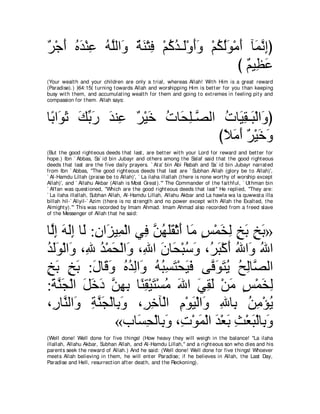 إِنَّمَآ أَمْوَٲلُكُمْ وَأَوْلَـٰدُكُمْ فِتْنَةٌ وَاللَّهُ عِنْدَهُ أَجْرٌ
عَظِيمٌ )
(Your wealth and your children are only a trial, whereas Allah! With Him is a great reward (Paradise).) (64:15) turning towards Allah and worshipping Him is better for you than keeping busy with them, and accumulating wealth for them and going to extremes in feeling pity and compassion for them. Allah says:
(وَالْبَـقِيَاتُ الصَّـلِحَاتُ خَيْرٌ عِندَ رَبِّكَ ثَوَابًا
وَخَيْرٌ أَمَلاً)
(But the good righteous deeds that last, are better with your Lord for reward and better for hope.) Ibn `Abbas, Sa`id bin Jubayr and others among the Salaf said that the good righteous deeds that last are the five daily prayers. `Ata' bin Abi Rabah and Sa`id bin Jubayr narrated from Ibn `Abbas, "The good righteous deeds that last are `Subhan Allah (glory be to Allah)', `Al-Hamdu Lillah (praise be to Allah)', `La ilaha illallah (there is none worthy of worship except Allah)', and `Allahu Akbar (Allah is Most Great).'" The Commander of the faithful, `Uthman bin `Affan was questioned, "Which are the good righteous deeds that last" He replied, "They are: `La ilaha illallah, Subhan Allah, Al-Hamdu Lillah, Allahu Akbar and La hawla wa la quwwata illa billah hil-`Aliyil-`Azim (there is no strength and no power except with Allah the Exalted, the Almighty).'" This was recorded by Imam Ahmad. Imam Ahmad also recorded from a freed slave of the Messenger of Allah that he said:
«بَخٍ بَخٍ لِخَمْسٍ مَا أَثْقَلَهُنَّ فِي الْمِيزَانِ: لَا إِلَهَ إِلَّا
اللهُ وَاللهُ أَكْبَرُ، وَسُبْحَانَ اللهِ، وَالْحَمْدُ للهِ، وَالْوَلَدُ
الصَّالِحُ يُتَوَفَّى فَيَحْتَسِبُهُ وَالِدُهُ وَقَالَ: بَخٍ بَخٍ
لِخَمْسٍ مَنْ لَقِيَ اللهَ مُسْتَيْقِنًا بِهِنَّ دَخَلَ الْجَنَّةَ:
يُؤْمِنُ بِاللهِ، وَالْيَوْمِ الْآخِرِ، وَبِالْجَنَّةِ وَالنَّارِ،
وَبِالْبَعْثِ بَعْدَ الْمَوْتِ، وَبِالْحِسَابِ»
(Well done! Well done for five things! (How heavy they will weigh in the balance! "La ilaha illallah, Allahu Akbar, Subhan Allah, and Al-Hamdu Lillah," and a righteous son who dies and his parents seek the reward of Allah.) And he said: (Well done! Well done for five things! Whoever meets Allah believing in them, he will enter Paradise; if he believes in Allah, the Last Day, Paradise and Hell, resurrection after death, and the Reckoning).